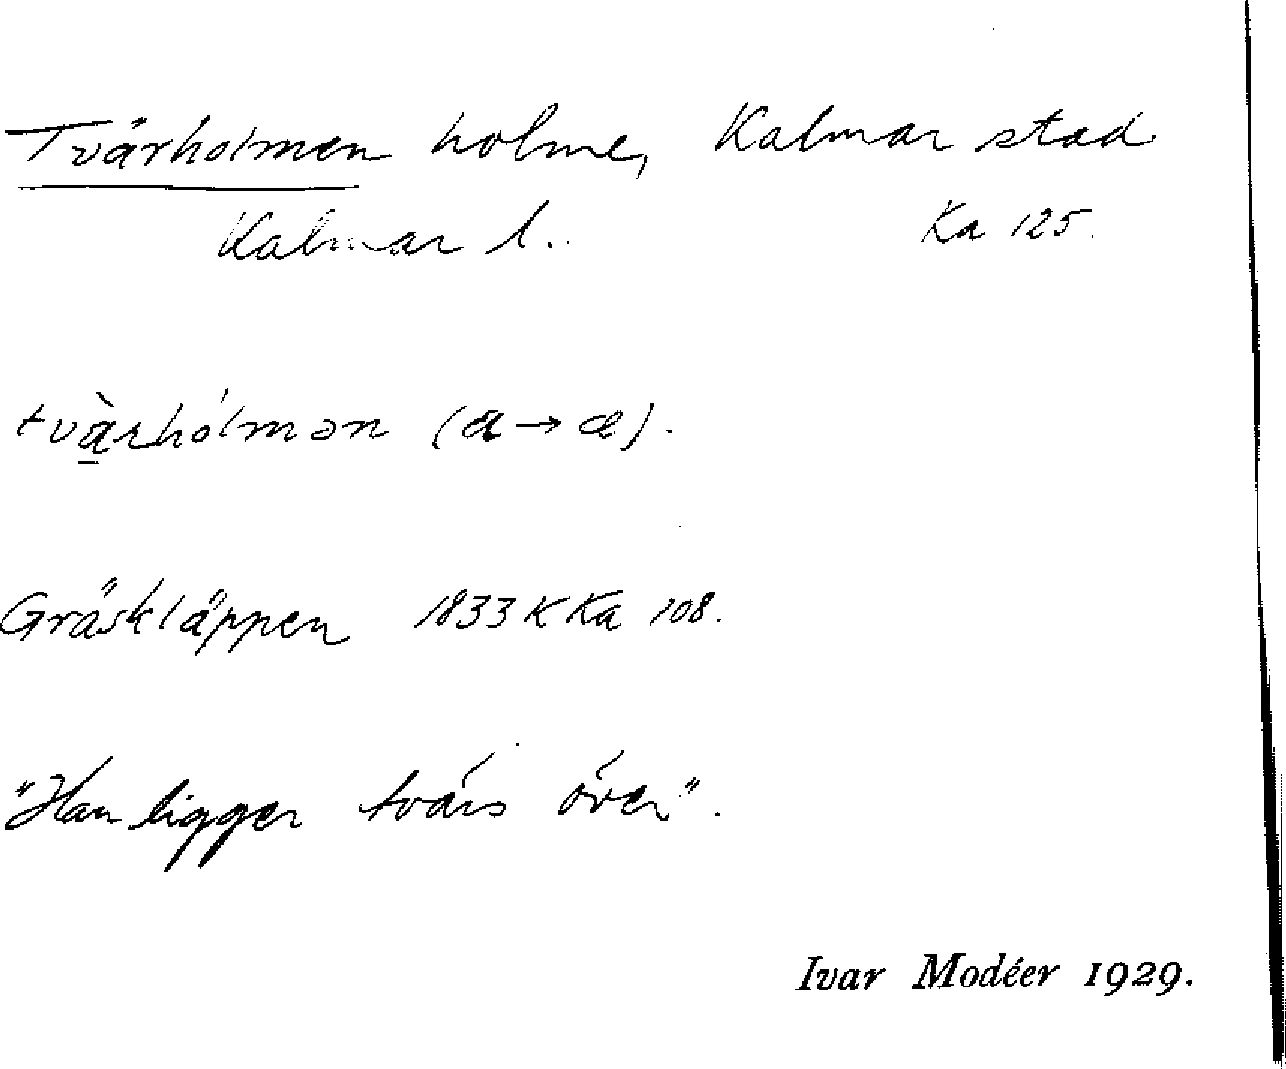 Tvärholmen holme, Kalmar stad
Kalmar l. Ka 125.
tvàrhólmən (a→æ).
Gräskläppen 1833 K Ka 108.
"Han ligger tvärs över".
Ivar Modéer 1929.